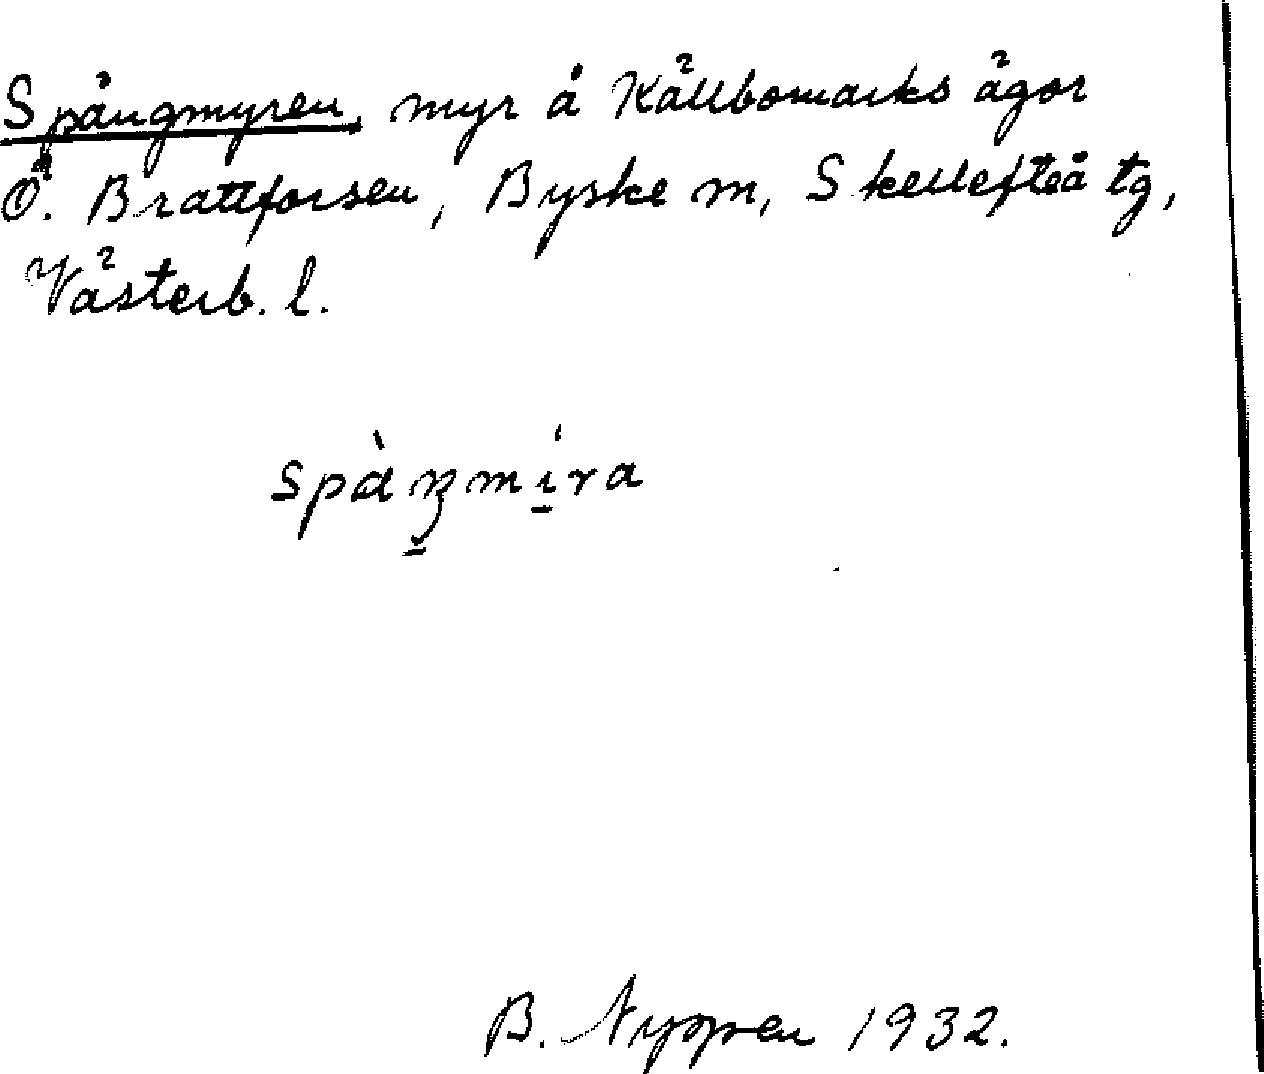 Spångmyren, myr å Källbomarks ägor
Ö. Brattforsen, Byske sn, Skellefteå tg,
Västerb. l.
spàŋmíra
B. Nyppen 1932.